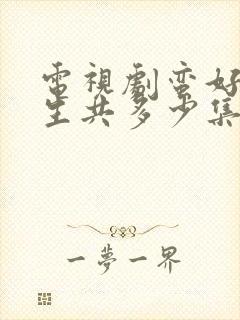 電視劇蛮好
生共多少集
一夢一界